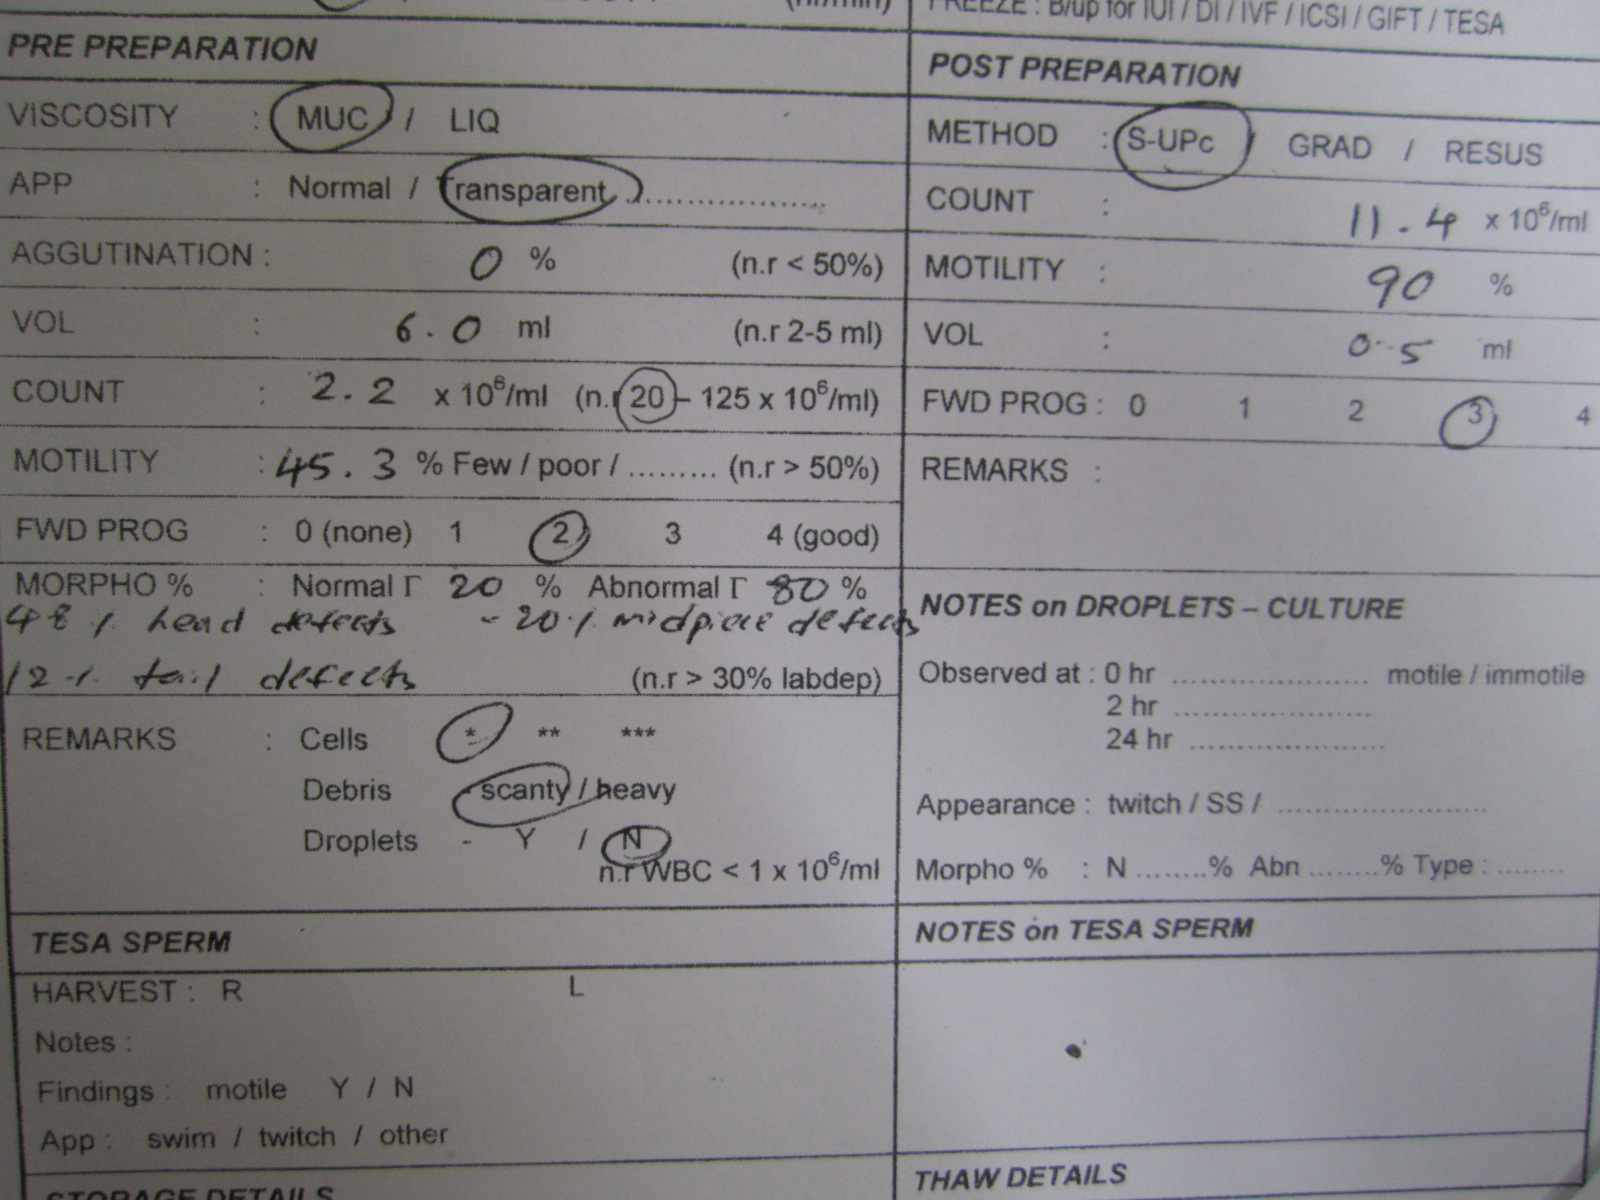 FREEZE : B/up for IUI / DI / IVF / ICSI / GIFT / TESA
PRE PREPARATION
VISCOSITY : MUC / LIQ
APP : Normal / Transparent ..................
AGGUTINATION : 0 % (n.r < 50%)
VOL : 6.0 ml (n.r 2-5 ml)
COUNT : 2.2 x 10⁶/ml (n.r 20 – 125 x 10⁶/ml)
MOTILITY : 45.3 % Few / poor / ......... (n.r > 50%)
FWD PROG : 0 (none) 1 2 3 4 (good)
MORPHO % : Normal Γ 20 % Abnormal Γ 80 %
48 % head defects - 20 % midpiece defects
12 % tail defects (n.r > 30% labdep)
REMARKS : Cells * ** ***
Debris - scanty / heavy
Droplets - Y / N
n.r WBC < 1 x 10⁶/ml
TESA SPERM
HARVEST : R L
Notes :
Findings : motile Y / N
App : swim / twitch / other
STORAGE DETAILS
POST PREPARATION
METHOD : S-UPc / GRAD / RESUS
COUNT : 11.4 x 10⁶/ml
MOTILITY : 90 %
VOL : 0.5 ml
FWD PROG : 0 1 2 3 4
REMARKS :
NOTES on DROPLETS – CULTURE
Observed at : 0 hr .................... motile / immotile
2 hr ....................
24 hr ....................
Appearance : twitch / SS / .....................
Morpho % : N ........% Abn ........% Type : ........
NOTES on TESA SPERM
THAW DETAILS